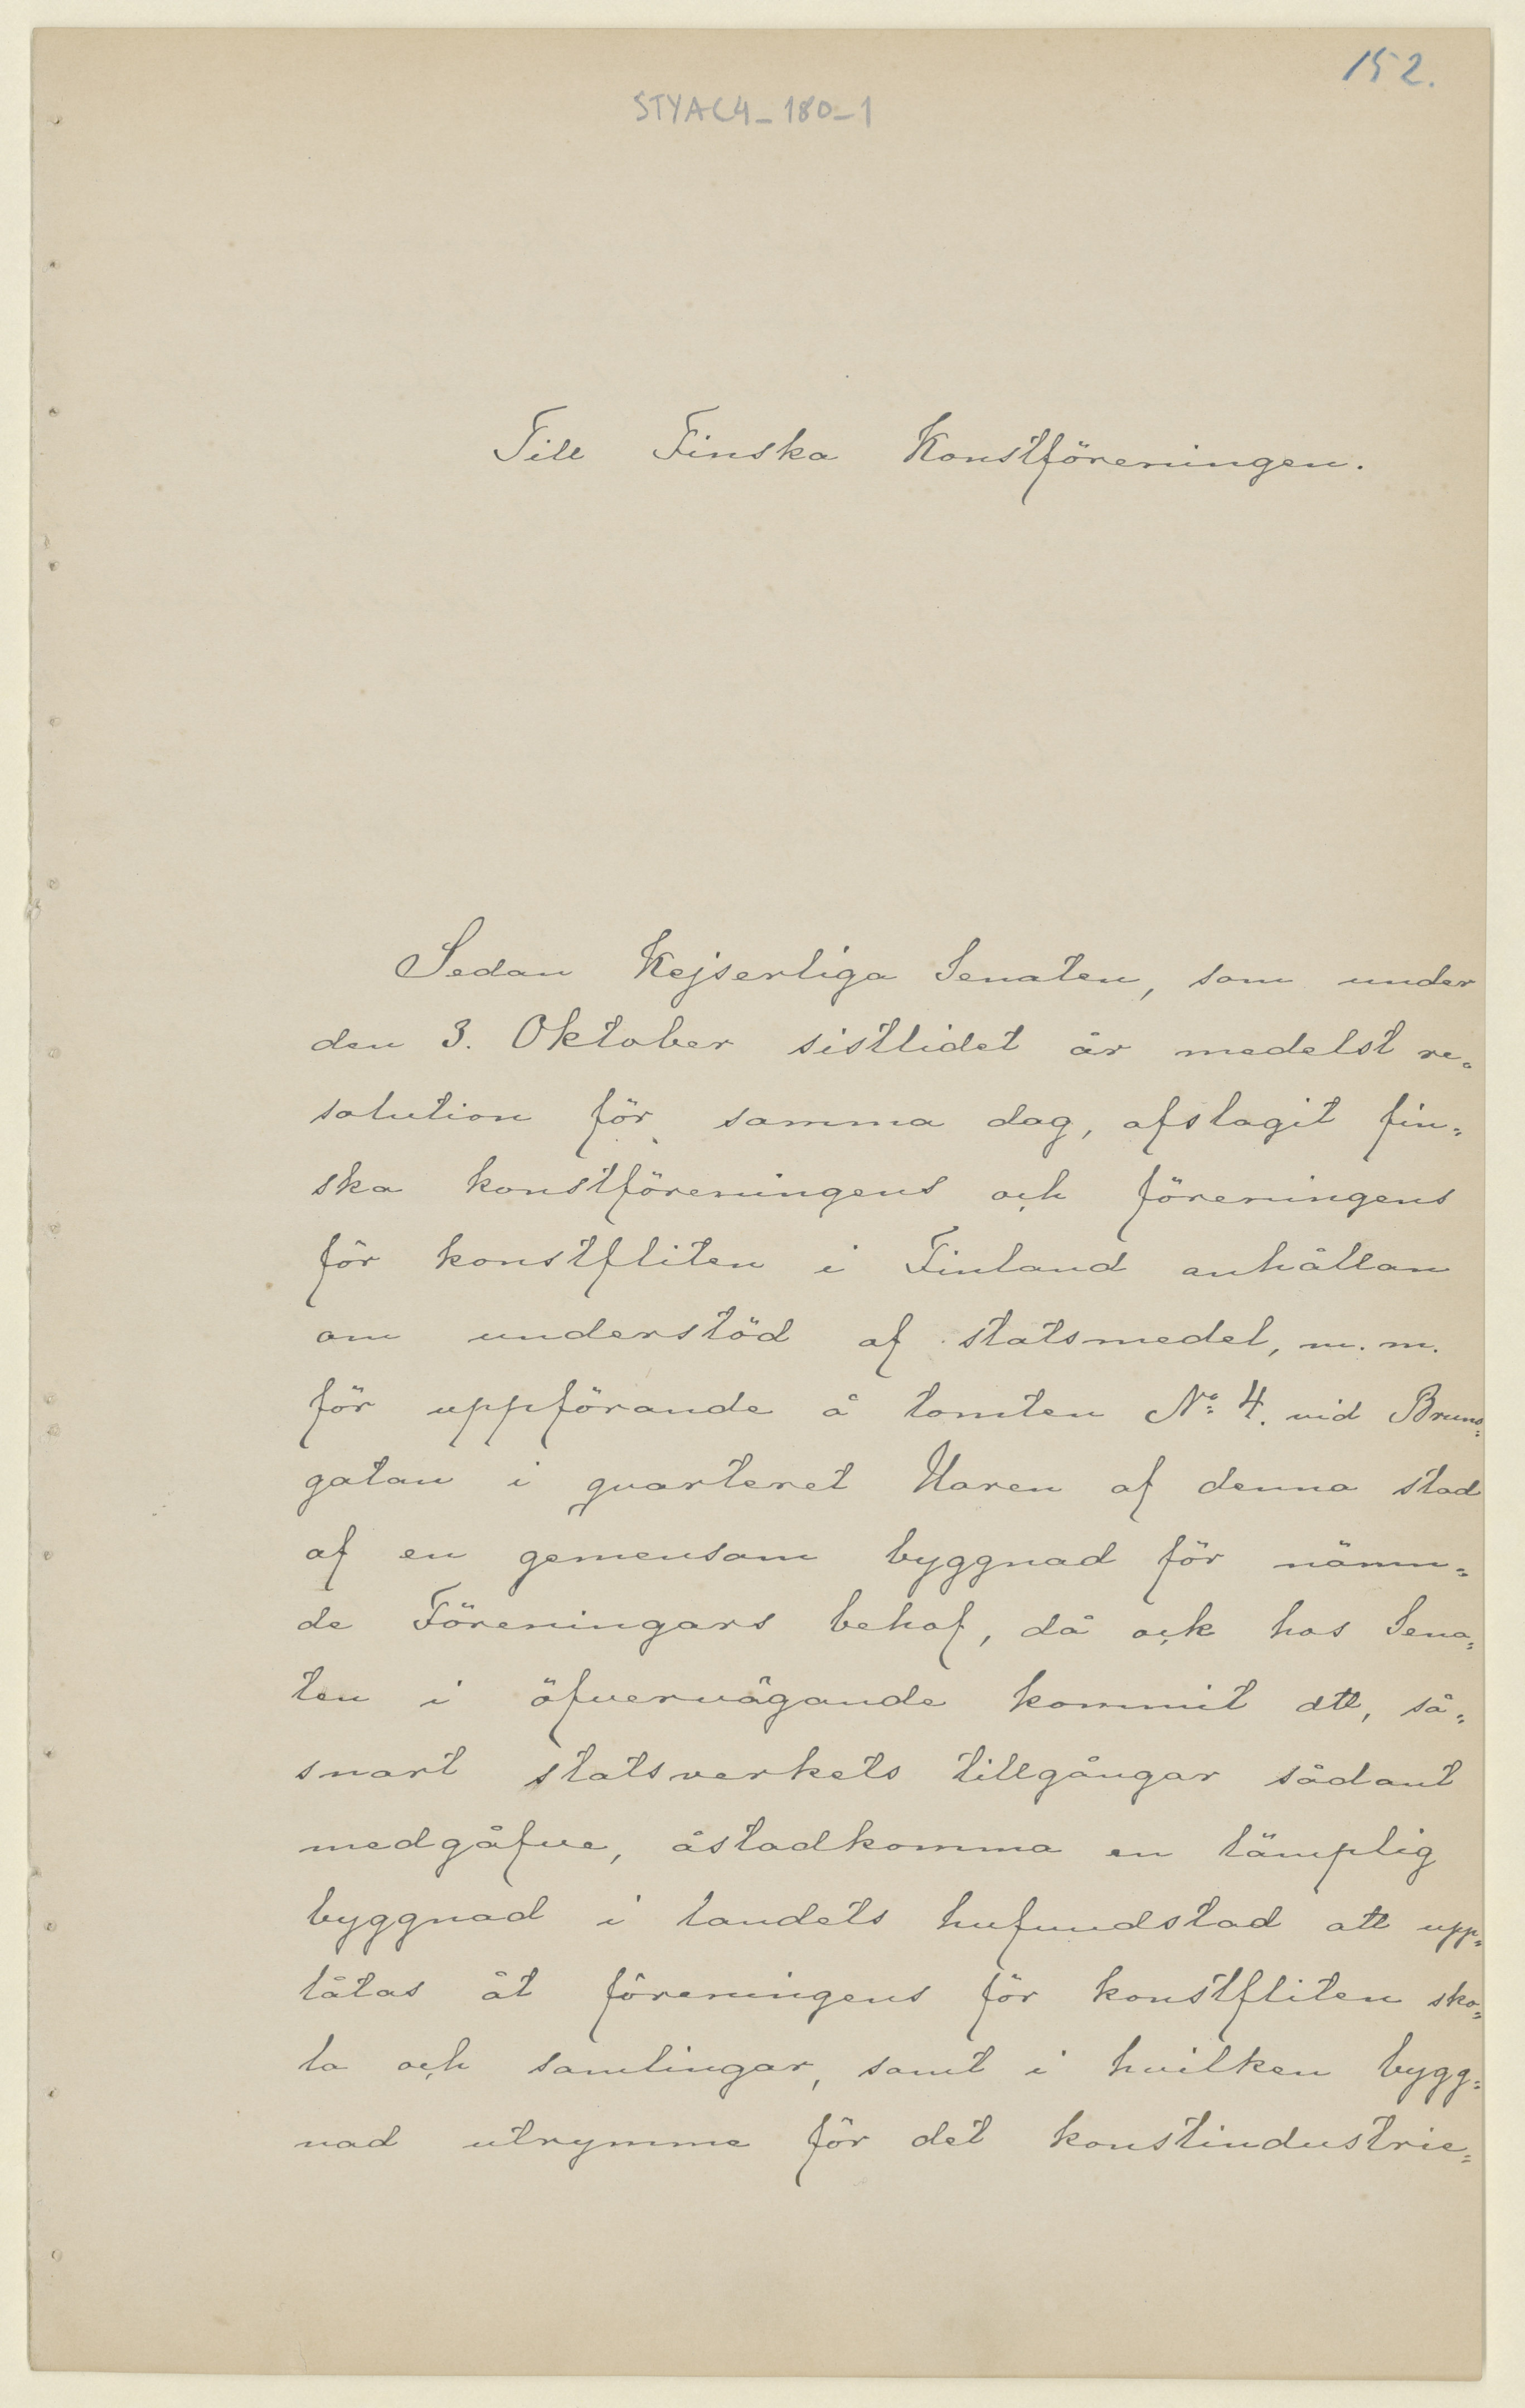 152.
STYAC4_180_1
Till Finska Konstföreningen.
Sedan Kejserliga Senaten, som under
den 3. Oktober sistlidet år medelst re=
solution för samma dag, afslagit fin=
ska konstföreningens och föreningens
för konstfliten i Finland anhållan
om understöd af statsmedel, m. m.
för uppförande å tomten No: 4. vid Bruns=
gatan i qvarteret Haren af denna stad
af en gemensam byggnad för nämn=
de Föreningars behof, då ock hos Sena=
ten i öfvervägande kommit att, så=
snart statsverkets tillgångar sådant
medgåfve, åstadkomma en lämplig
byggnad i landets hufvudstad att upp=
låtas åt föreningens för konstfliten sko=
la och samlingar, samt i hvilken bygg=
nad utrymme för det konstindustrie=